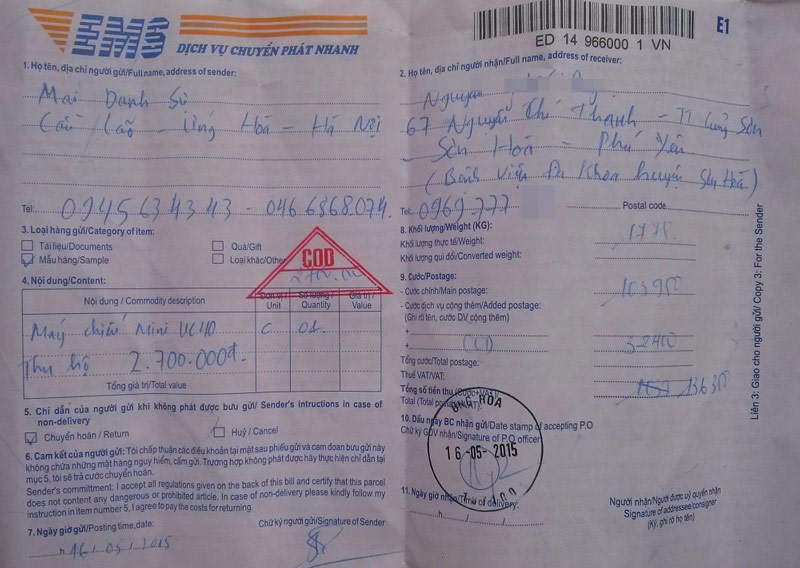 EMS
DỊCH VỤ CHUYỂN PHÁT NHANH
1. Họ tên, địa chỉ người gửi/Full name, address of sender:
Mai Danh Sử
Cầu Lão - Ứng Hoà - Hà Nội
Tel: 0945634343 - 0466868074.
3. Loại hàng gửi/Category of item:
Tài liệu/Documents
Quà/Gift
Mẫu hàng/Sample
Loại khác/Other
COD
4. Nội dung/Content:
Nội dung / Commodity description
Unit
Quantity
Giá trị / Value
Máy chiếu Mini UC40
C
01
Thu hộ 2.700.000đ.
Tổng giá trị/Total value
5. Chỉ dẫn của người gửi khi không phát được bưu gửi/ Sender's intructions in case of
non-delivery
Chuyển hoàn / Return
Huỷ / Cancel
6. Cam kết của người gửi: Tôi chấp thuận các điều khoản tại mặt sau phiếu gửi và cam đoan bưu gửi này
không chứa những mặt hàng nguy hiểm, cấm gửi. Trường hợp không phát được hãy thực hiện chỉ dẫn tại
mục 5, tôi sẽ trả cước chuyển hoàn.
Sender's committment: I accept all regulations given on the back of this bill and certify that this parcel
does not content any dangerous or prohibited article. In case of non-delivery please kindly follow my
instruction in item number 5, I agree to pay the costs for returning.
7. Ngày giờ gửi/Posting time,date:
Chữ ký người gửi/Signature of Sender
16/05/2015
E1
ED 14 966000 1 VN
2. Họ tên, địa chỉ người nhận/Full name, address of receiver:
Nguyễn
67 Nguyễn Chí Thanh - TT Củng Sơn
Sơn Hoà - Phú Yên
(Bệnh Viện Đa Khoa huyện Sơn Hoà)
Tel: 0969.777
Postal code
8. Khối lượng/Weight (KG):
Khối lượng thực tế/Weight:
Khối lượng qui đổi/Converted weight:
9. Cước/Postage:
- Cước chính/Main postage:
- Cước dịch vụ cộng thêm/Added postage:
(Ghi rõ tên, cước DV cộng thêm)
Tổng cước/Total postage:
Thuế VAT/VAT:
Tổng số tiền thu (Cước+VAT)
Total (Total postage+VAT):
10. Dấu ngày BC nhận gửi/Date stamp of accepting P.O
Chữ ký GDV nhận/Signature of P.O officer
ỨNG HÒA
16-05-2015
11. Ngày giờ nhận/Time of delivery:
Người nhận/Người được uỷ quyền nhận
Signature of addressee/consigner
(Ký, ghi rõ họ tên)
Liên 3: Giao cho người gửi/ Copy 3: For the Sender